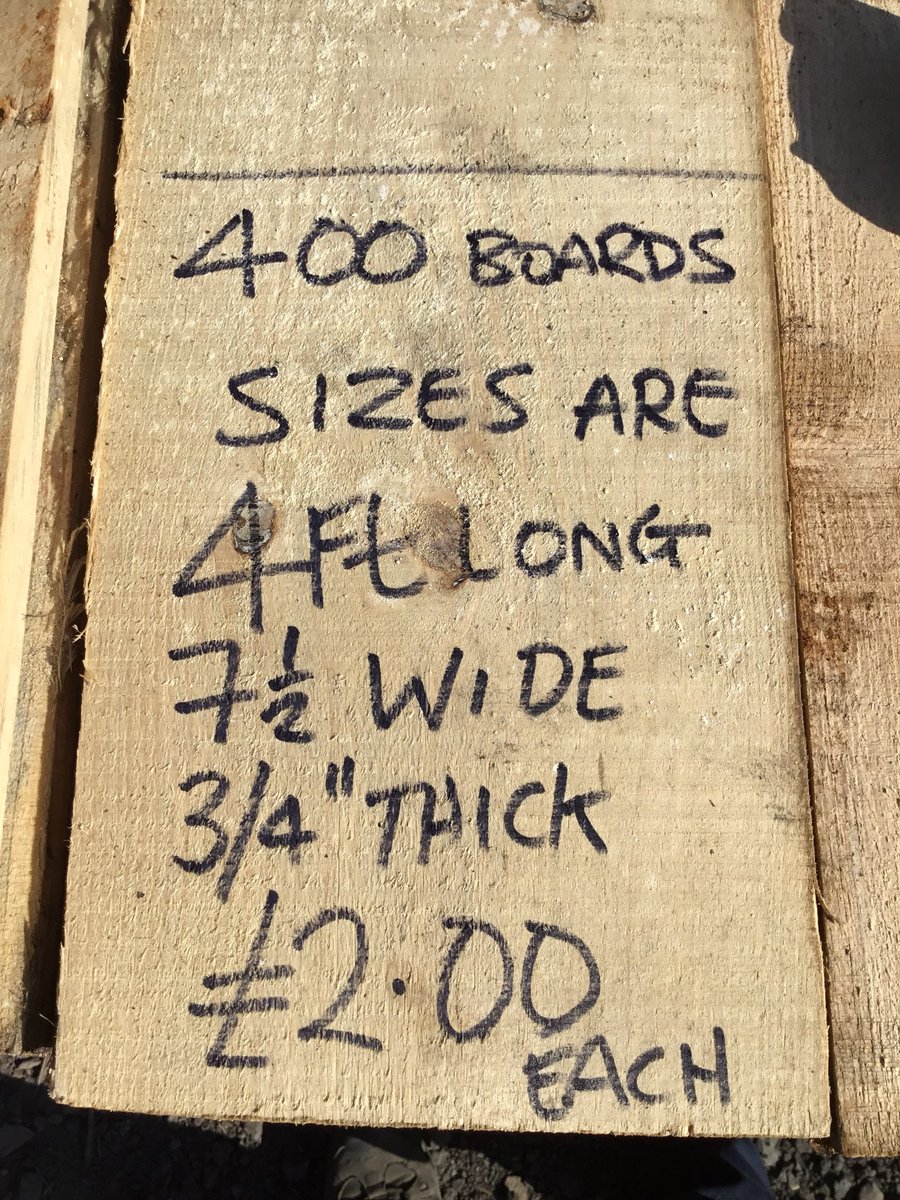 400 BOARDS
SIZES ARE
4 Ft LONG
7 1/2 WIDE
3/4" THICK
£2.00
EACH